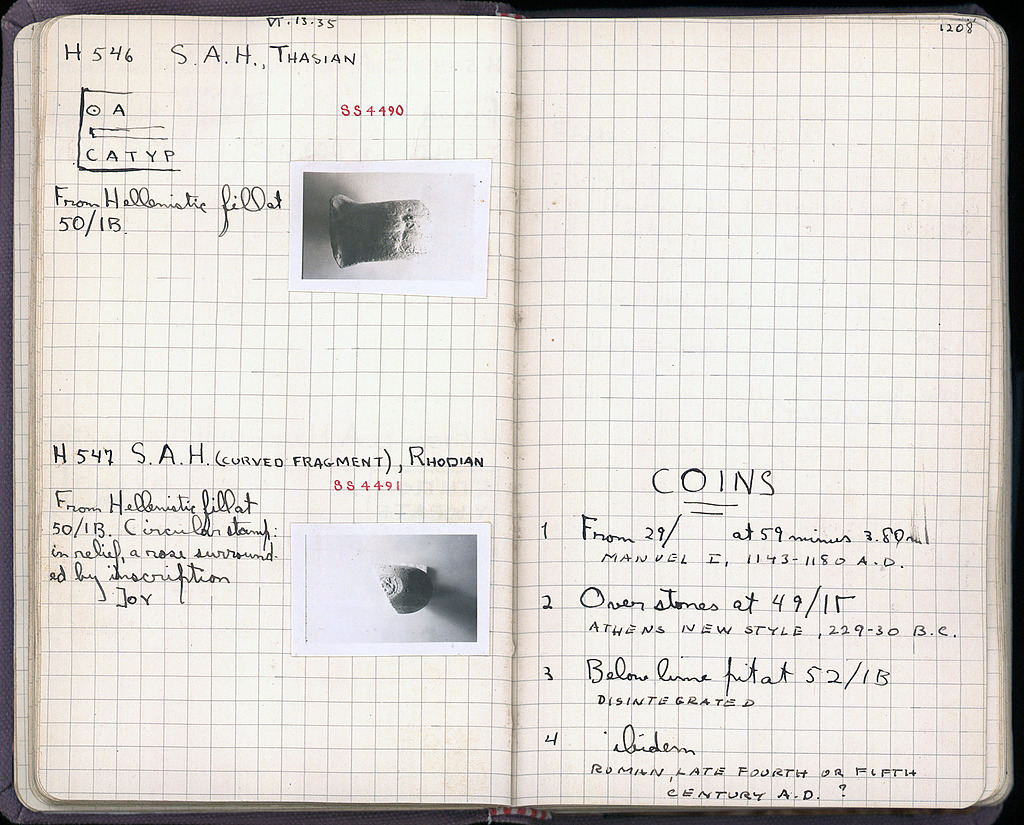 VI.13.35
H 546 S.A.H., THASIAN
SS4490
ΘΑ
CΑΤΥΡ
From Hellenistic fill at
50/ΙΒ.
H 547 S.A.H. (CURVED FRAGMENT), RHODIAN
SS4491
From Hellenistic fill at
50/ΙΒ. Circular stamp:
in relief, a rose surround-
ed by inscription
]ΟΥ
1208
COINS
1 From 29/ at 59 minus 3.80m
MANUEL I, 1143-1180 A.D.
2 Over stones at 49/ΙΓ
ATHENS NEW STYLE, 229-30 B.C.
3 Below lime pit at 52/ΙΒ
DISINTEGRATED
4 ibidem
ROMAN, LATE FOURTH OR FIFTH
CENTURY A.D. ?